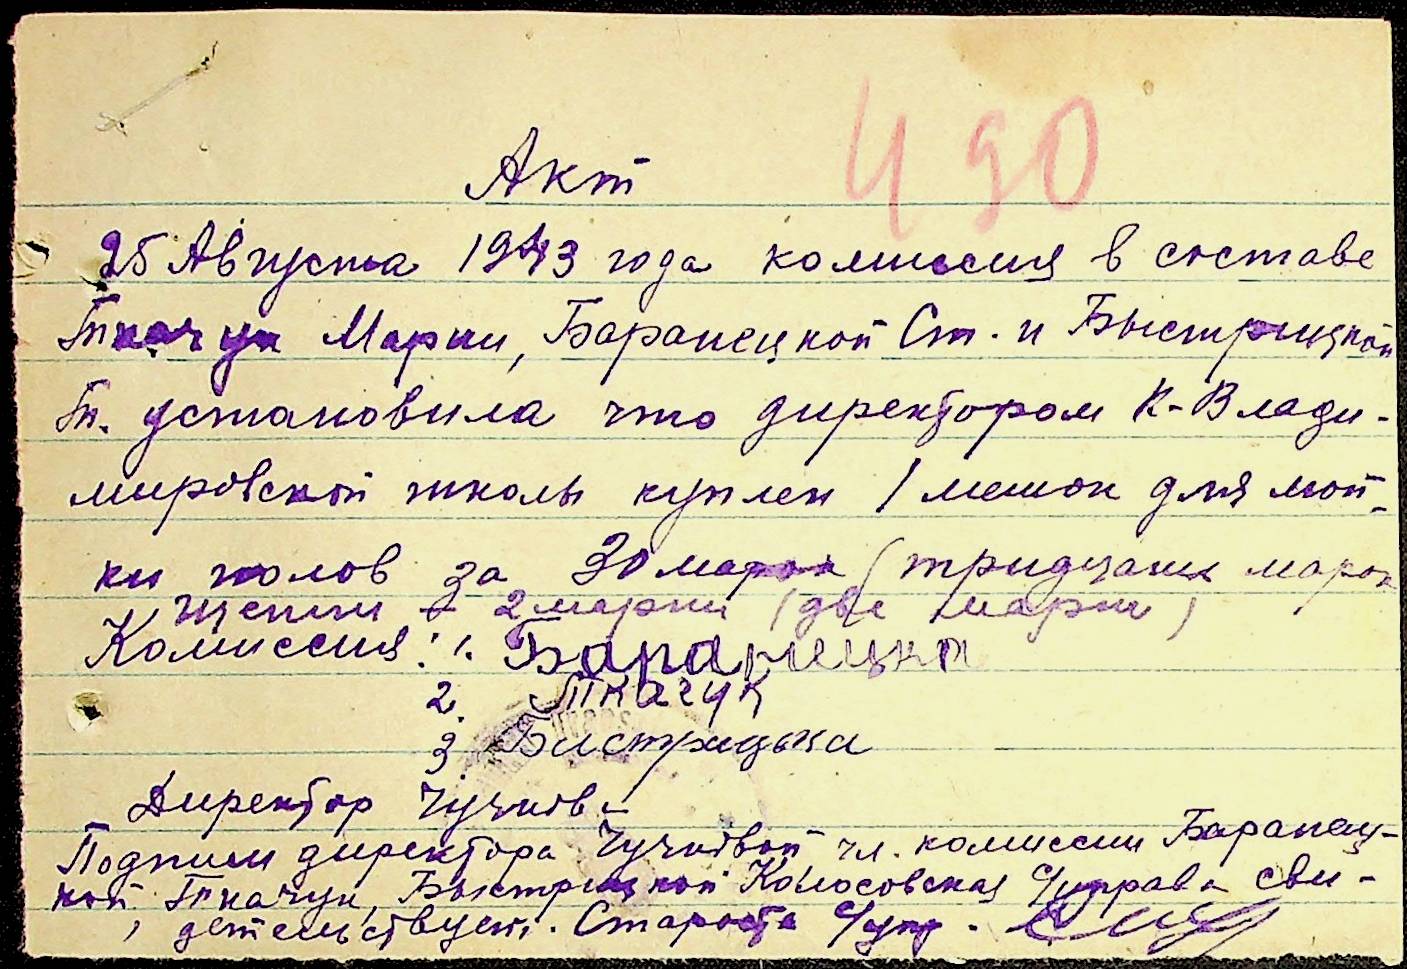 490
Акт
25 Августа 1943 года комиссия в составе
Ткачук Марии, Баранецкой Ст. и Быстрицкой
Т. установила что директором К-Влади-
мировской школы куплен 1 мешок для мой-
ки полов за 30 марок (тридцать марок
Щетки - 2 марки (две марки)
Комиссия: 1. Баранецка
2. Ткачук
3. Бистрицька
Директор Чучкова
Подписи директора Чучковой чл. комиссии Баранец-
кой Ткачук, Быстрицкой Колосовская с/управа сви-
детельствует. Староста с/упр.